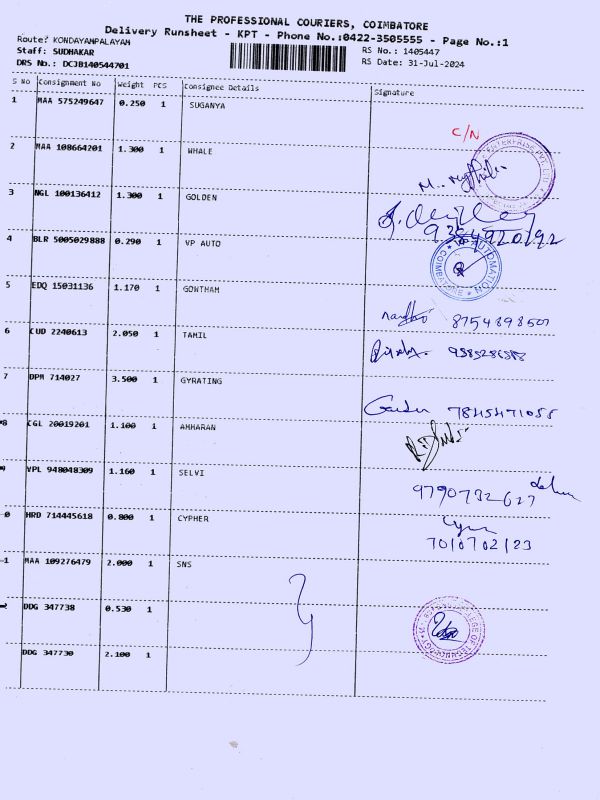 THE PROFESSIONAL COURIERS, COIMBATORE
Delivery Runsheet - KPT - Phone No.:0422-3505555 - Page No.:1
Route? KONDAYAMPALAYAM RS No. : 1405447
Staff: SUDHAKAR RS Date: 31-Jul-2024
DRS No.: DCJB140544701
S No Consignment No Weight PCS Consignee Details Signature
1 MAA 575249647 0.250 1 SUGANYA
C/N
2 MAA 108664201 1.300 1 WHALE
3 NGL 100136412 1.300 1 GOLDEN
4 BLR 5005029888 0.290 1 VP AUTO
AUTOMATION COIMBATORE
5 EDQ 15031136 1.170 1 GOWTHAM
8754898507
6 CUD 2240613 2.050 1 TAMIL
7 DPM 714027 3.500 1 GYRATING
7845471055
8 CGL 20019201 1.100 1 AHHARAN
9 VPL 948048309 1.160 1 SELVI
9790732627
0 HRD 714445618 0.800 1 CYPHER
7010702123
1 MAA 109276479 2.000 1 SNS
2 DDG 347738 0.530 1
DDG 347730 2.100 1